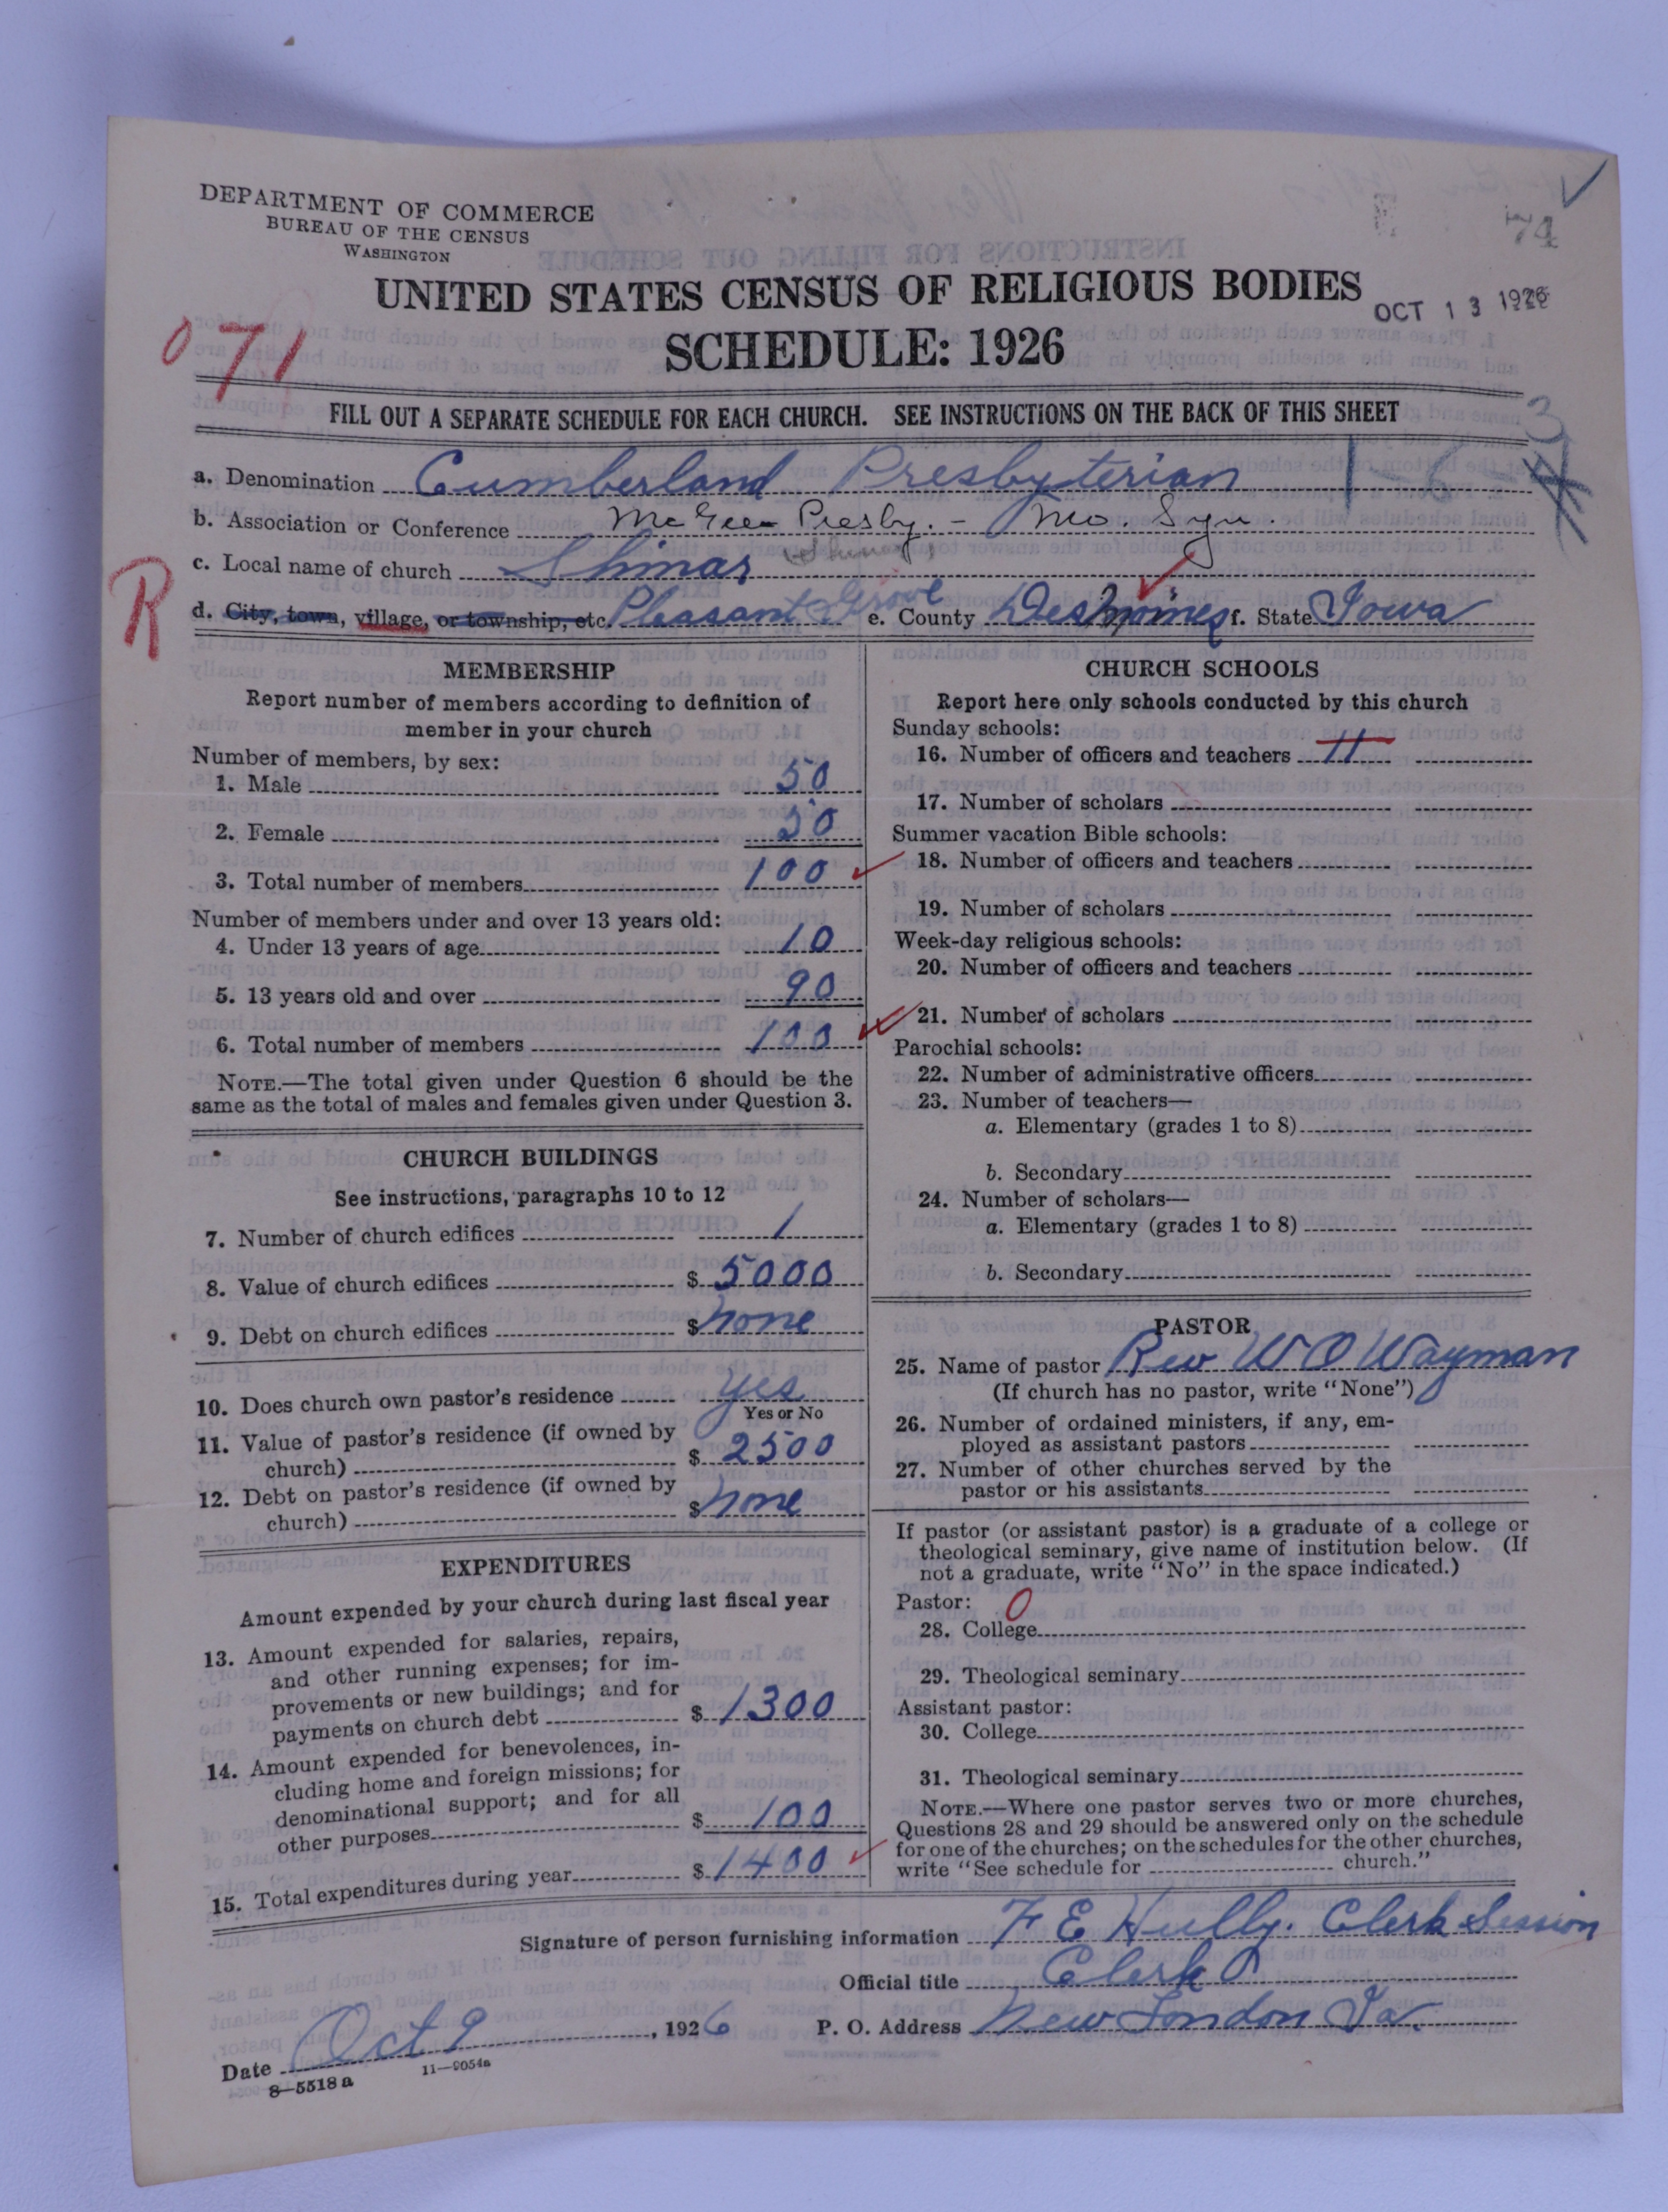 DEPARTMENT OF COMMERCE
BUREAU OF THE CENSUS
WASHINGTON
74
UNITED STATES CENSUS OF RELIGIOUS BODIES
OCT 13 1926
SCHEDULE: 1926
071
FILL OUT A SEPARATE SCHEDULE FOR EACH CHURCH. SEE INSTRUCTIONS ON THE BACK OF THIS SHEET
a. Denomination Cumberland Presbyterian 1-6-
3
b. Association or Conference McGee Presby. - Mo. Syn.
c. Local name of church Shinar
R
d. City, town, village, or township, etc. Pleasant Grove e. County Desmoines f. State Iowa
MEMBERSHIP
Report number of members according to definition of
member in your church
Number of members, by sex:
1. Male 50
2. Female 50
3. Total number of members 100
Number of members under and over 13 years old:
4. Under 13 years of age 10
5. 13 years old and over 90
6. Total number of members 100
NOTE.—The total given under Question 6 should be the
same as the total of males and females given under Question 3.
CHURCH BUILDINGS
See instructions, paragraphs 10 to 12
7. Number of church edifices 1
8. Value of church edifices $ 5000
9. Debt on church edifices $ none
10. Does church own pastor's residence yes
Yes or No
11. Value of pastor's residence (if owned by
church) $ 2500
12. Debt on pastor's residence (if owned by
church) $ none
EXPENDITURES
Amount expended by your church during last fiscal year
13. Amount expended for salaries, repairs,
and other running expenses; for im-
provements or new buildings; and for
payments on church debt $ 1300
14. Amount expended for benevolences, in-
cluding home and foreign missions; for
denominational support; and for all
other purposes $ 100
15. Total expenditures during year $ 1400
CHURCH SCHOOLS
Report here only schools conducted by this church
Sunday schools:
16. Number of officers and teachers 11
17. Number of scholars
Summer vacation Bible schools:
18. Number of officers and teachers
19. Number of scholars
Week-day religious schools:
20. Number of officers and teachers
21. Number of scholars
Parochial schools:
22. Number of administrative officers
23. Number of teachers—
a. Elementary (grades 1 to 8)
b. Secondary
24. Number of scholars—
a. Elementary (grades 1 to 8)
b. Secondary
PASTOR
25. Name of pastor Rev W O Wayman
(If church has no pastor, write "None")
26. Number of ordained ministers, if any, em-
ployed as assistant pastors
27. Number of other churches served by the
pastor or his assistants
If pastor (or assistant pastor) is a graduate of a college or
theological seminary, give name of institution below. (If
not a graduate, write "No" in the space indicated.)
Pastor: 0
28. College
29. Theological seminary
Assistant pastor:
30. College
31. Theological seminary
NOTE.—Where one pastor serves two or more churches,
Questions 28 and 29 should be answered only on the schedule
for one of the churches; on the schedules for the other churches,
write "See schedule for church."
Signature of person furnishing information F E Hully. Clerk Session
Official title Clerk
Date Oct 9, 1926 P. O. Address New London Ia.
8—5518a 11—9054a